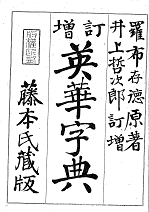 羅布存德原著
井上哲次郎訂增
訂增英華字典
藤本氏藏版